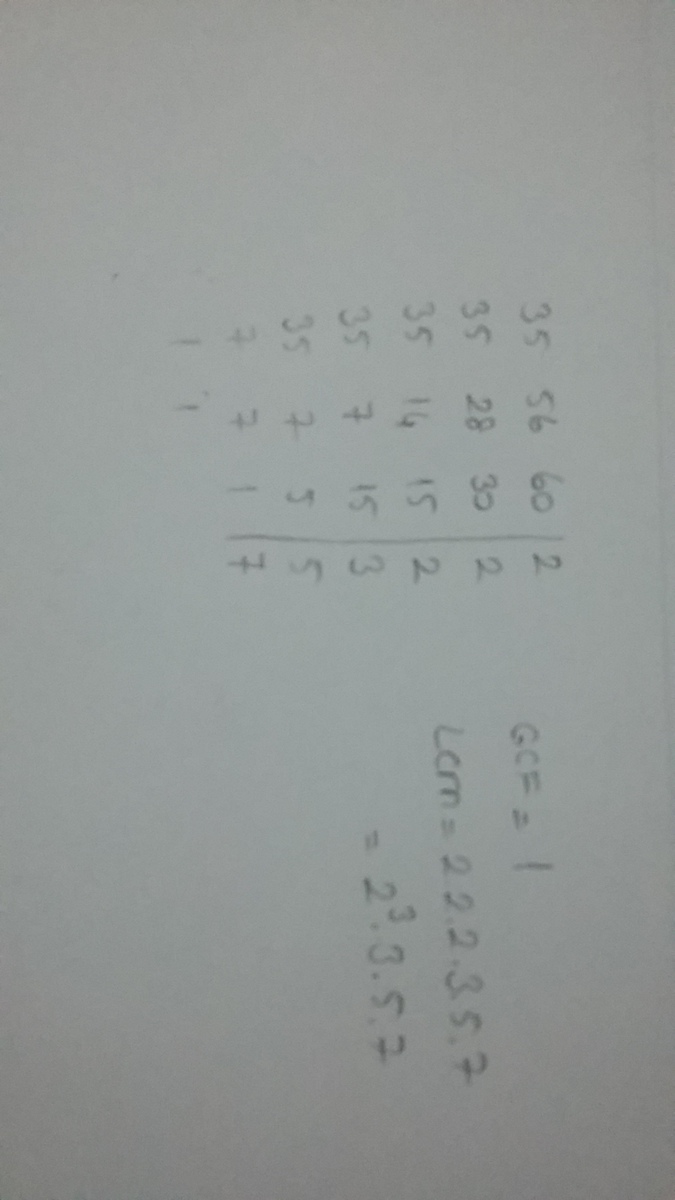 35 56 60 | 2
35 28 30 | 2
35 14 15 | 2
35 7 15 | 3
35 7 5 | 5
7 7 1 | 7
1 1
GCF = 1
LCM = 2 2.2.3 5.7
= 2³.3.5.7